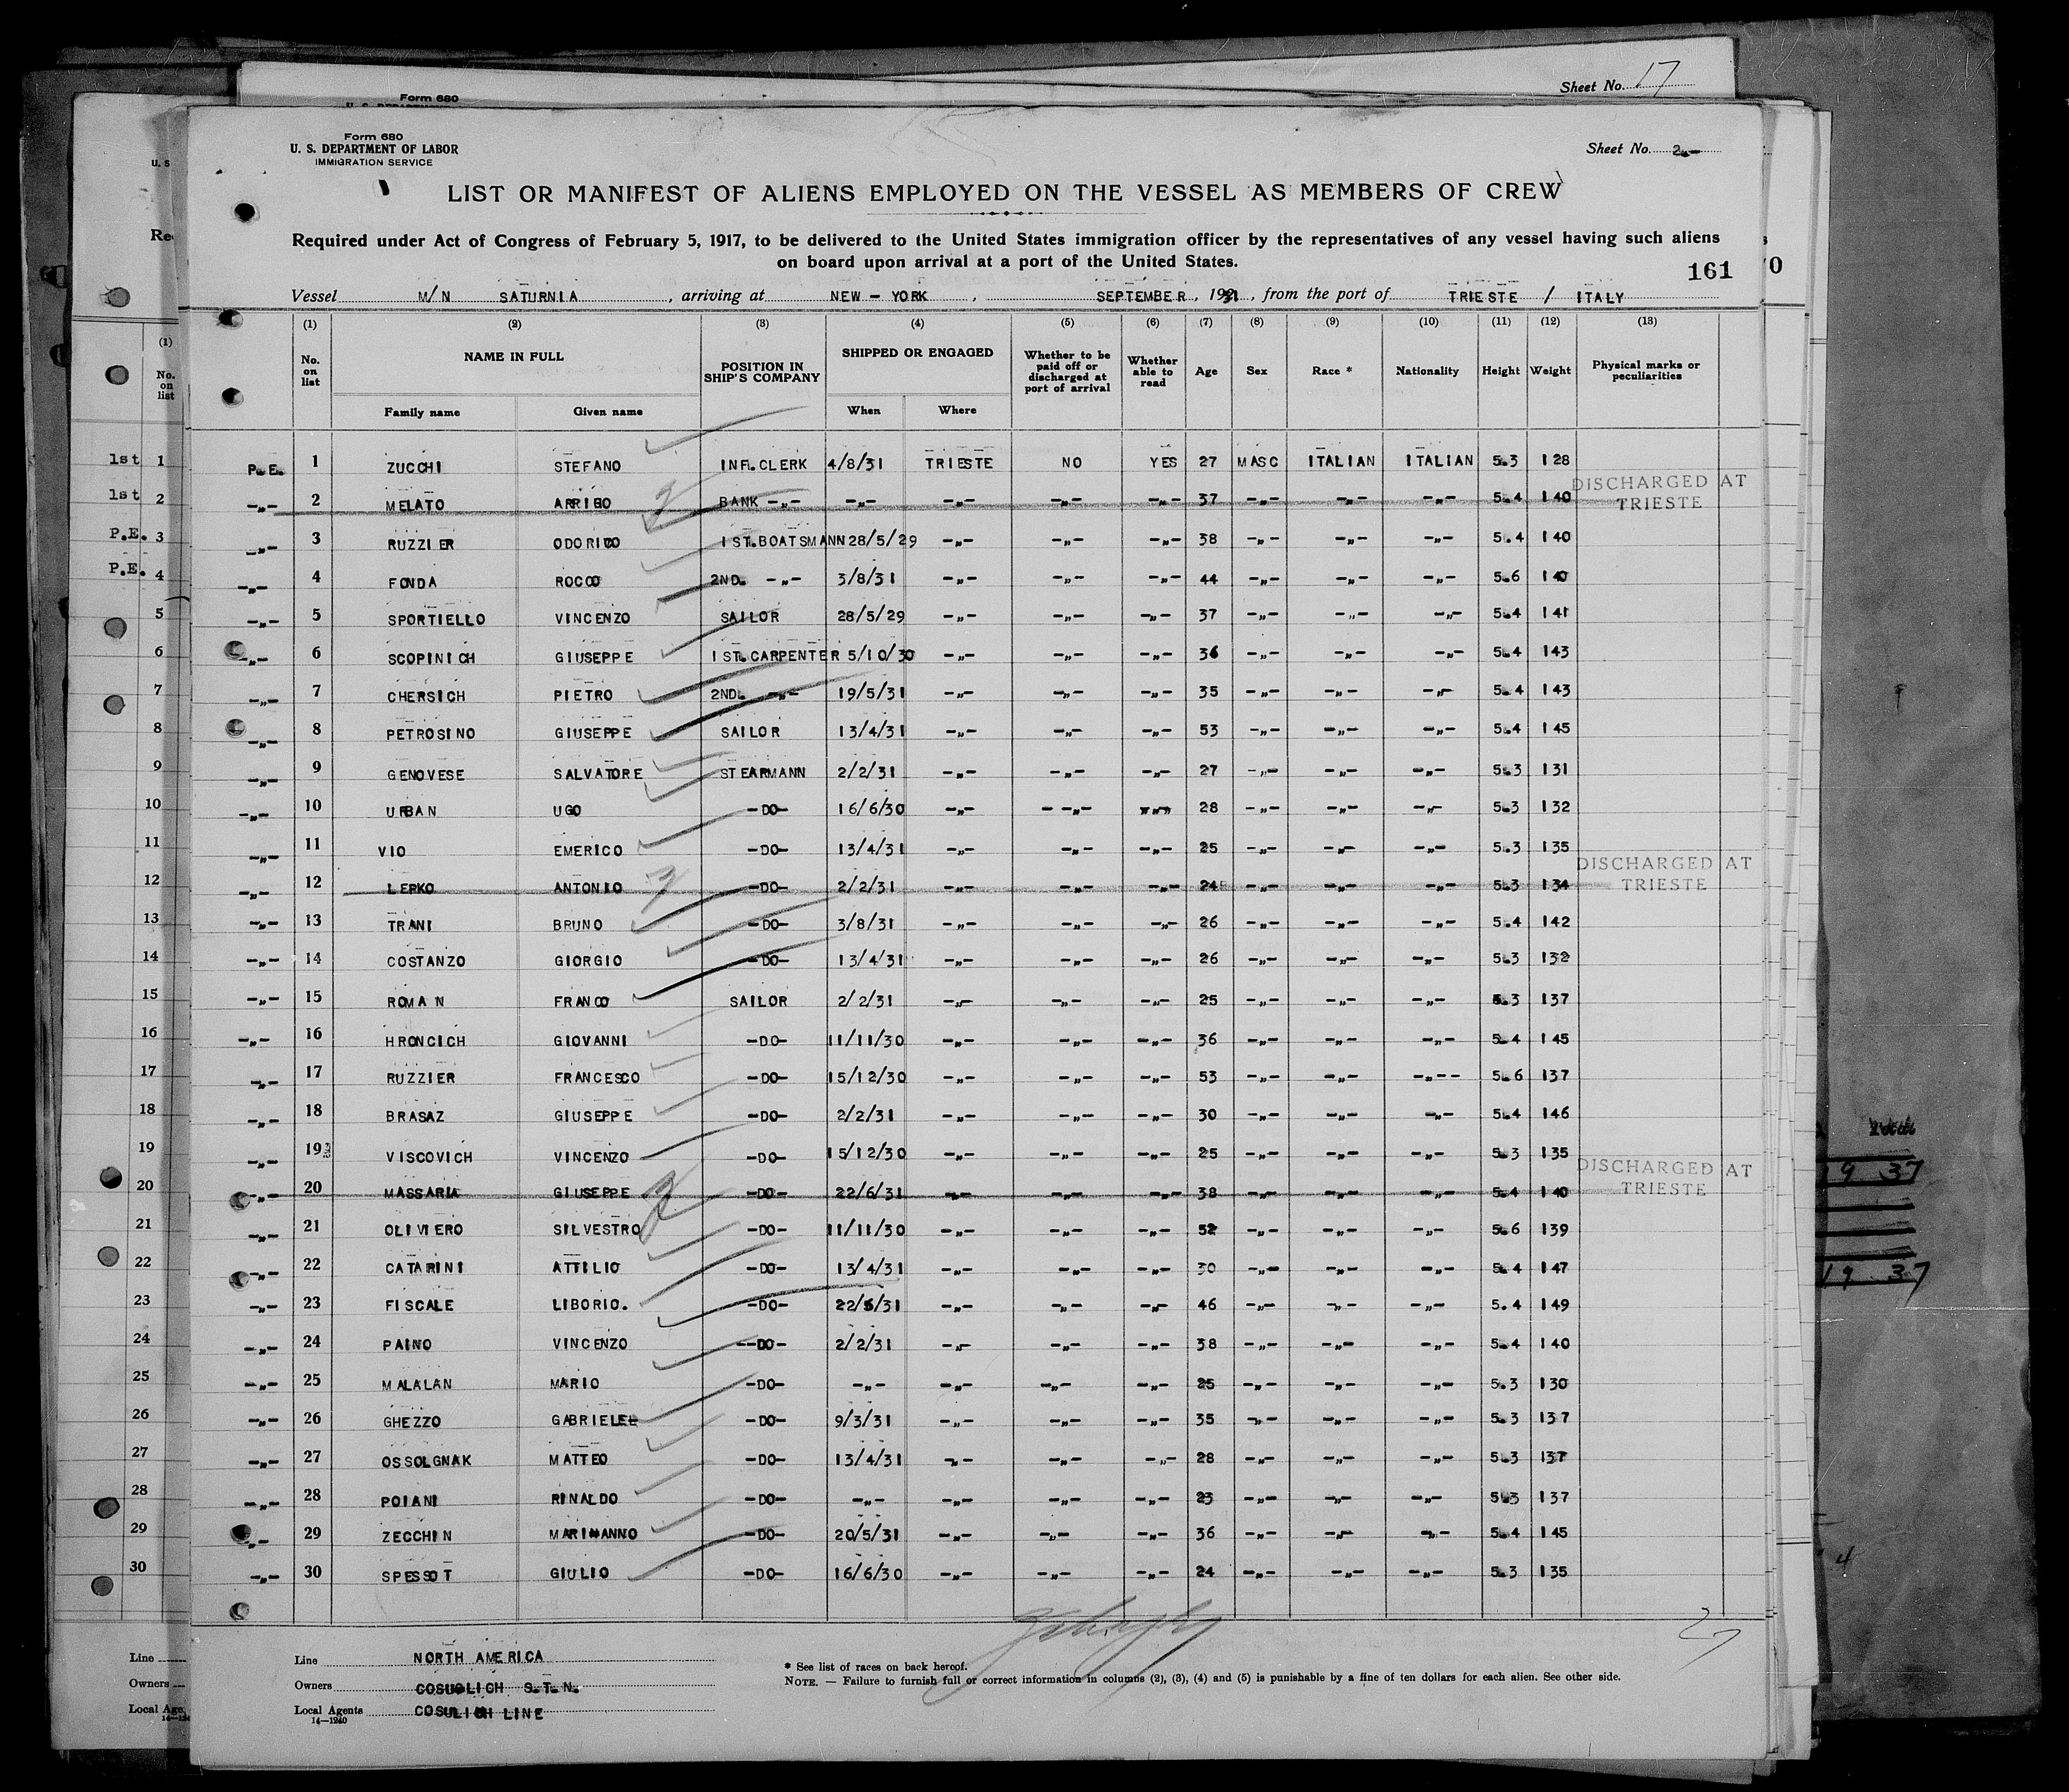 Sheet No. 17
Form 680
Form 680
U. S. DEPARTMENT OF LABOR
IMMIGRATION SERVICE
Sheet No. 2.-
LIST OR MANIFEST OF ALIENS EMPLOYED ON THE VESSEL AS MEMBERS OF CREW
Required under Act of Congress of February 5, 1917, to be delivered to the United States immigration officer by the representatives of any vessel having such aliens
on board upon arrival at a port of the United States.
161
Vessel M/N SATURNIA, arriving at NEW - YORK, SEPTEMBER, 1931, from the port of TRIESTE / ITALY
(1) (2) (3) (4) (5) (6) (7) (8) (9) (10) (11) (12) (13)
No. on list NAME IN FULL POSITION IN SHIP'S COMPANY SHIPPED OR ENGAGED Whether to be paid off or discharged at port of arrival Whether able to read Age Sex Race * Nationality Height Weight Physical marks or peculiarities
Family name Given name When Where
P.E. 1 ZUCCHI STEFANO INF.CLERK 4/8/31 TRIESTE NO YES 27 MASC ITALIAN ITALIAN 5.3 128
-„- 2 MELATO ARRIGO BANK -„- -„- -„- -„- -„- 37 -„- -„- -„- 5.4 140 DISCHARGED AT TRIESTE
-„- 3 RUZZIER ODORICO 1ST.BOATSMANN 28/5/29 -„- -„- -„- 38 -„- -„- -„- 5.4 140
-„- 4 FONDA ROCCO 2ND. -„- 3/8/31 -„- -„- -„- 44 -„- -„- -„- 5.6 140
-„- 5 SPORTIELLO VINCENZO SAILOR 28/5/29 -„- -„- -„- 37 -„- -„- -„- 5.4 141
-„- 6 SCOPINICH GIUSEPPE 1ST.CARPENTER 5/10/30 -„- -„- -„- 36 -„- -„- -„- 5.4 143
-„- 7 CHERSICH PIETRO 2ND. -„- 19/5/31 -„- -„- -„- 35 -„- -„- -„- 5.4 143
-„- 8 PETROSINO GIUSEPPE SAILOR 13/4/31 -„- -„- -„- 53 -„- -„- -„- 5.4 145
-„- 9 GENOVESE SALVATORE STEARMANN 2/2/31 -„- -„- -„- 27 -„- -„- -„- 5.3 131
-„- 10 URBAN UGO -DO- 16/6/30 -„- - -„- „„„ 28 -„- -„- -„- 5.3 132
-„- 11 VIO EMERICO -DO- 13/4/31 -„- -„- -„- 25 -„- -„- -„- 5.3 135
-„- 12 LEPKO ANTONIO -DO- 2/2/31 -„- -„- -„- 24 -„- -„- -„- 5.3 134 DISCHARGED AT TRIESTE
-„- 13 TRANI BRUNO -DO- 3/8/31 -„- -„- -„- 26 -„- -„- -„- 5.4 142
-„- 14 COSTANZO GIORGIO -DO- 13/4/31 -„- -„- -„- 26 -„- -„- -„- 5.3 132
-„- 15 ROMAN FRANCO SAILOR 2/2/31 -„- -„- -„- 25 -„- -„- -„- 5.3 137
-„- 16 HRONCICH GIOVANNI -DO- 11/11/30 -„- -„- -„- 36 -„- -„- -„- 5.4 145
-„- 17 RUZZIER FRANCESCO -DO- 15/12/30 -„- -„- -„- 53 -„- -„- -„-- 5.6 137
-„- 18 BRASAZ GIUSEPPE -DO- 2/2/31 -„- -„- -„- 30 -„- -„- -„- 5.4 146
-„- 19 VISCOVICH VINCENZO -DO- 15/12/30 -„- -„- -„- 25 -„- -„- -„- 5.3 135
-„- 20 MASSARIA GIUSEPPE -DO- 22/6/31 -„- -„- -„- 38 -„- -„- -„- 5.4 140 DISCHARGED AT TRIESTE
-„- 21 OLIVIERO SILVESTRO -DO- 11/11/30 -„- -„- -„- 52 -„- -„- -„- 5.6 139
-„- 22 CATARINI ATTILIO -DO- 13/4/31 -„- -„- -„- 30 -„- -„- -„- 5.4 147
-„- 23 FISCALE LIBORIO. -DO- 22/5/31 -„- -„- -„- 46 -„- -„- -„- 5.4 149
-„- 24 PAINO VINCENZO --DO- 2/2/31 -„- -„- -„- 38 -„- -„- -„- 5.4 140
-„- 25 MALALAN MARIO -DO- -„- -„- -„- -„- 25 -„- -„- -„- 5.3 130
-„- 26 GHEZZO GABRIELE -DO- 9/3/31 -„- -„- -„- 35 -„- -„- -„- 5.3 137
-„- 27 OSSOLGNAK MATTEO -DO- 13/4/31 -„- -„- -„- 28 -„- -„- -„- 5.3 137
-„- 28 POIANI RINALDO -DO- -„- -„- -„- -„- 23 -„- -„- -„- 5.3 137
-„- 29 ZECCHIN MARIANNO -DO- 20/5/31 -„- -„- -„- 36 -„- -„- -„- 5.4 145
-„- 30 SPESSOT GIULIO -DO- 16/6/30 -„- -„- -„- 24 -„- -„- -„- 5.3 135
Line NORTH AMERICA
Owners COSULICH S.T.N.
Local Agents COSULICH LINE
14-1240
* See list of races on back hereof.
NOTE. — Failure to furnish full or correct information in columns (2), (3), (4) and (5) is punishable by a fine of ten dollars for each alien. See other side.